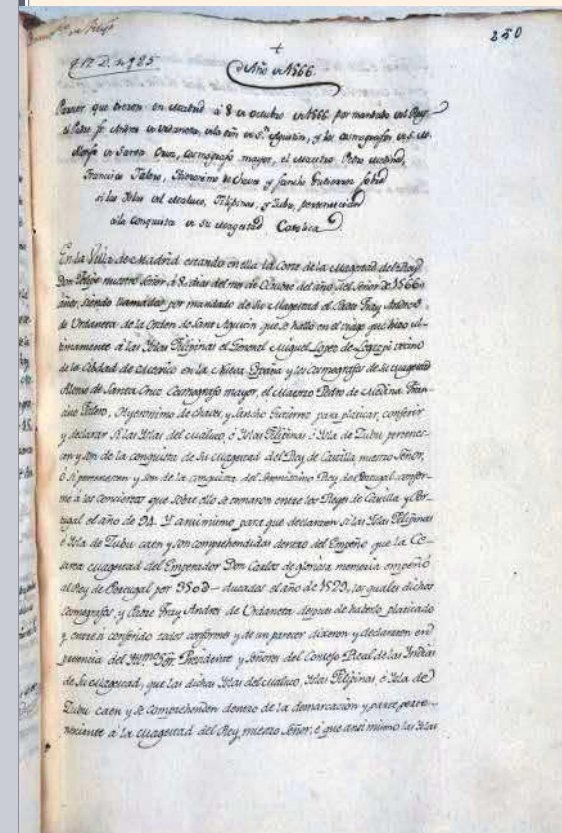 250
Año de 1566.
Parecer que dieron en Madrid á 8 de octubre de 1566. por mandado del Rey
el Padre fr. Andres de Urdaneta, de la orn de Sn. Agustin, y los cosmografos de S. M.
Alonso de Santa Cruz, cosmografo mayor, el Maestro Pedro Medina,
Francisco Falero, Hieronimo de Chaves y Sancho Gutierrez sobre
si las Islas del Maluco, Filipinas, y Zubu, pertenecian
ala conquista de su Magestad Catolica.
En la Villa de Madrid estando en ella la Corte de la Magestad del Rey
Don Felipe nuestro Señor á 8. dias del mes de Octubre del año del Señor de 1566
años, siendo llamados por mandado de Su Magestad el Padre Fray Andres
de Urdaneta de la Orden de Sant Agustin que se halló en el viage que hizo ul-
timamente á las Yslas Filipinas el General Miguel Lopez de Legazpi vecino
de la Cibdad de Mexico en la Nueva España y los Cosmografos de su magestad
Alonso de Santa Cruz Cosmografo mayor, el Maestro Pedro de Medina Fran-
cisco Falero, Hyeronimo de Chaves, y Sancho Gutierrez para platicar, conferir
y declarar si las Yslas del Maluco, ó Yslas Filipinas é Ysla de Zubu pertenes-
cen y son de la conquista de su magestad del Rey de Castilla nuestro Señor,
ó si pertenescen y son de la conquista del Serenisimo Rey de Portugal confor-
me á los conciertos que sobre ello se tomaron entre los Reyes de Castilla y Por-
tugal el año de 94. Y ansimismo para que declarasen si las Yslas Filipinas
é Ysla de Zubu caen y son comprehendidas dentro del Empeño que la Ce-
sarea magestad del Emperador Don Carlos de gloriosa memoria empeñó
al Rey de Portugal por 350∂ ducados el año de 1529, los quales dichos
Cosmografos, y Padre Fray Andres de Urdaneta despues de haberlo platicado
y entre sí conferido todos conformes y de un parecer dixeron y declararon en
presencia del Presidente y Señores del Consejo Real de las Yndias
de Su magestad, que las dichas Yslas del maluco, Yslas Filipinas, é Ysla de
Zubu caen y se comprehenden dentro de la demarcacion y parte perte-
neciente á la magestad del Rey nuestro Señor, é que ansimismo las Yslas